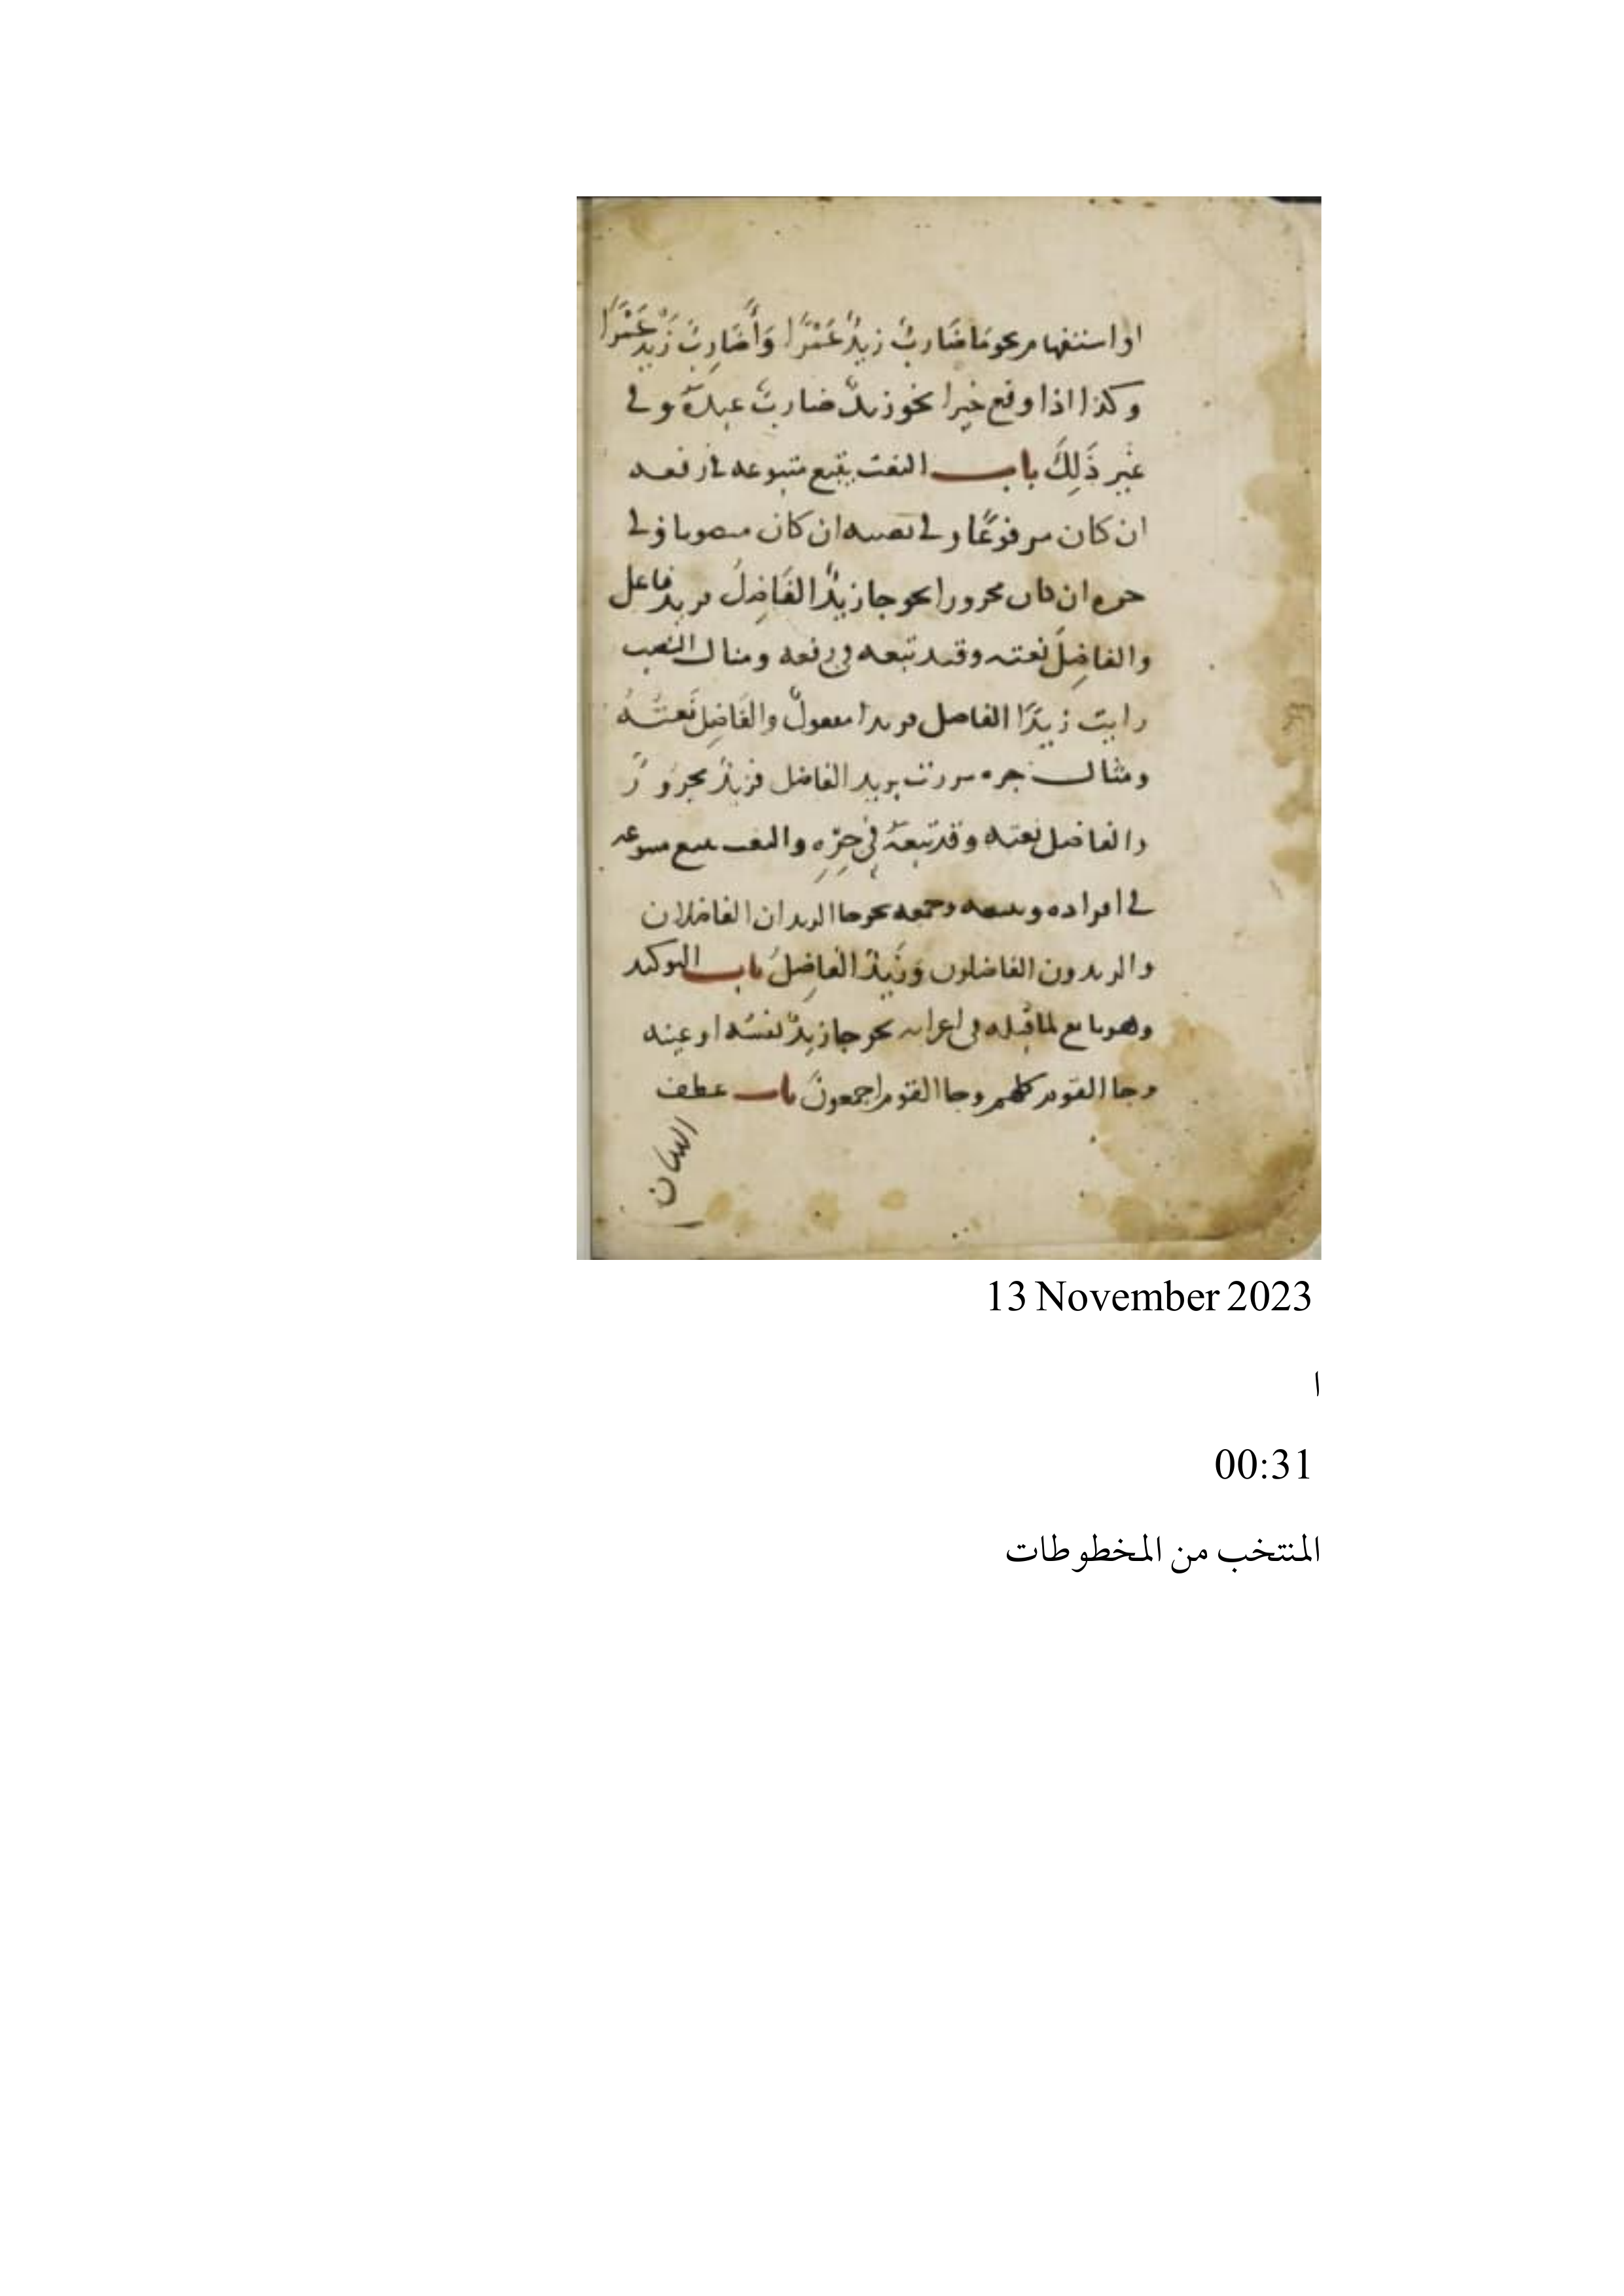 او استفهام نحو مَا ضَاربٌ زيدٌ عَمْرًا وَأَضَارِبٌ زَيْدٌ عَمْرًا
وكذا اذا وقع خبرا نحو زيدٌ ضاربٌ عبده وفي
غير ذَلِكَ باب النعت يتبع متبوعه في رفعه
ان كان مرفوعًا وفي نصبه ان كان منصوبا وفي
جره ان كان مجرورا نحو جا زيدٌ الفَاضِلُ فزيد فاعل
والفاضِلُ نعته وقد تبعه في رفعه ومثال النصب
رايت زيدًا الفاضل فزيدا مفعولٌ والفَاضِلَ نَعتُهُ
ومثال جره مررت بزيد الفاضل فزيدٌ مجرورٌ
والفاضل نعته وقد تبعهُ فِي جرِّهِ والنعت يتبع متبوعه
في افراده وتثنيته وجمعه نحو جا الزيدان الفاضلان
والزيدون الفاضلون وَزَيدٌ الفاضِلُ باب التوكيد
وهو تابع لما قبله في اعرابه نحو جا زيدٌ نفسُه او عينه
وجا القوم كلهم وجا القوم اجمعونَ باب عطف
البيان
13 November 2023
ا
00:31
المنتخب من المخطوطات